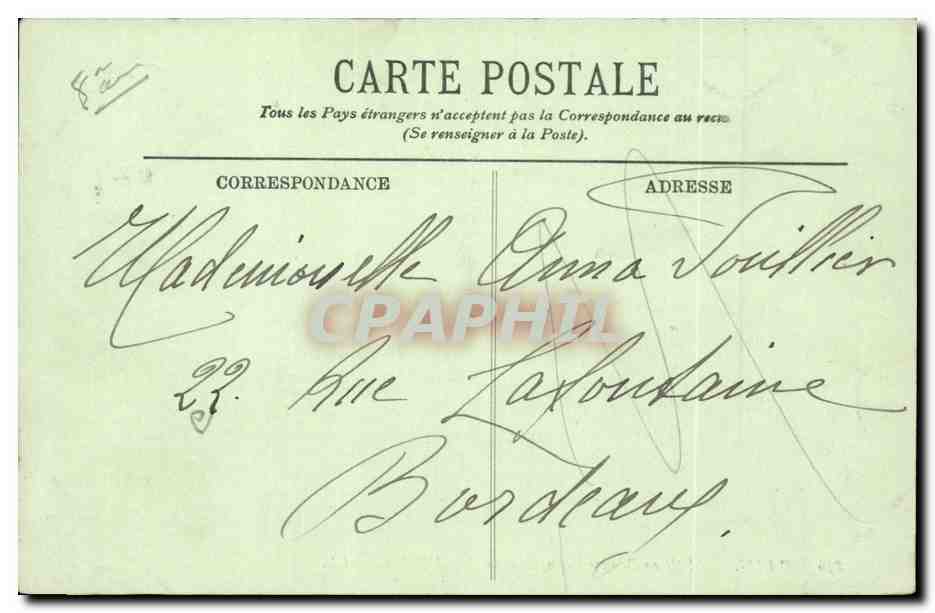 CARTE POSTALE
Tous les Pays étrangers n'acceptent pas la Correspondance au recto
(Se renseigner à la Poste).
CORRESPONDANCE
ADRESSE
Mademoiselle Anna
22. Rue Lafontaine
Bordeaux.
CPAPHIL